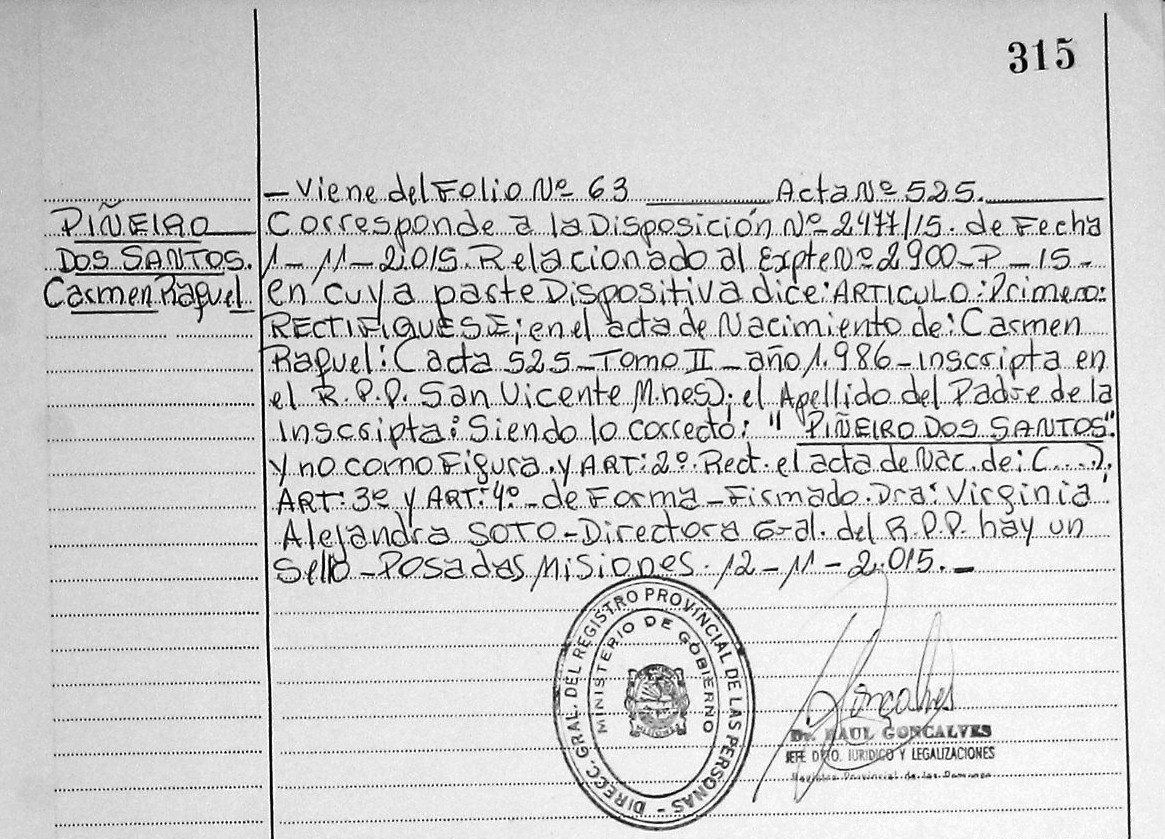 315
PIÑEIRO
DOS SANTOS.
Carmen Raquel
- Viene del Folio Nº 63 ______ Acta Nº 525. ______
Corresponde a la Disposición Nº 2477/15. de Fecha
1-11-2.015. Relacionado al Expte Nº 2900-P-15-
en cuya parte Dispositiva dice: ARTICULO: Primero:
RECTIFIQUESE; en el acta de Nacimiento de: Carmen
Raquel: (acta 525-Tomo II-año 1.986-Inscripta en
el R.P.P. San Vicente Mnes); el Apellido del Padre de la
Inscripta: Siendo lo correcto: "PIÑEIRO DOS SANTOS".
y no como Figura. y ART: 2º. Rect. el acta de Nac. de: (....).
ART: 3º y ART: 4º- de Forma-Firmado. Dra: Virginia
Alejandra SOTO-Directora Gral. del R.P.P. hay un
Sello-Posadas Misiones. 12-11-2.015.-
DIREC. GRAL. DEL REGISTRO PROVINCIAL DE LAS PERSONAS -
MINISTERIO DE GOBIERNO
MISIONES
Gonçalves
Dr. RAUL GONCALVES
JEFE DPTO. JURIDICO Y LEGALIZACIONES
Registro Provincial de las Personas